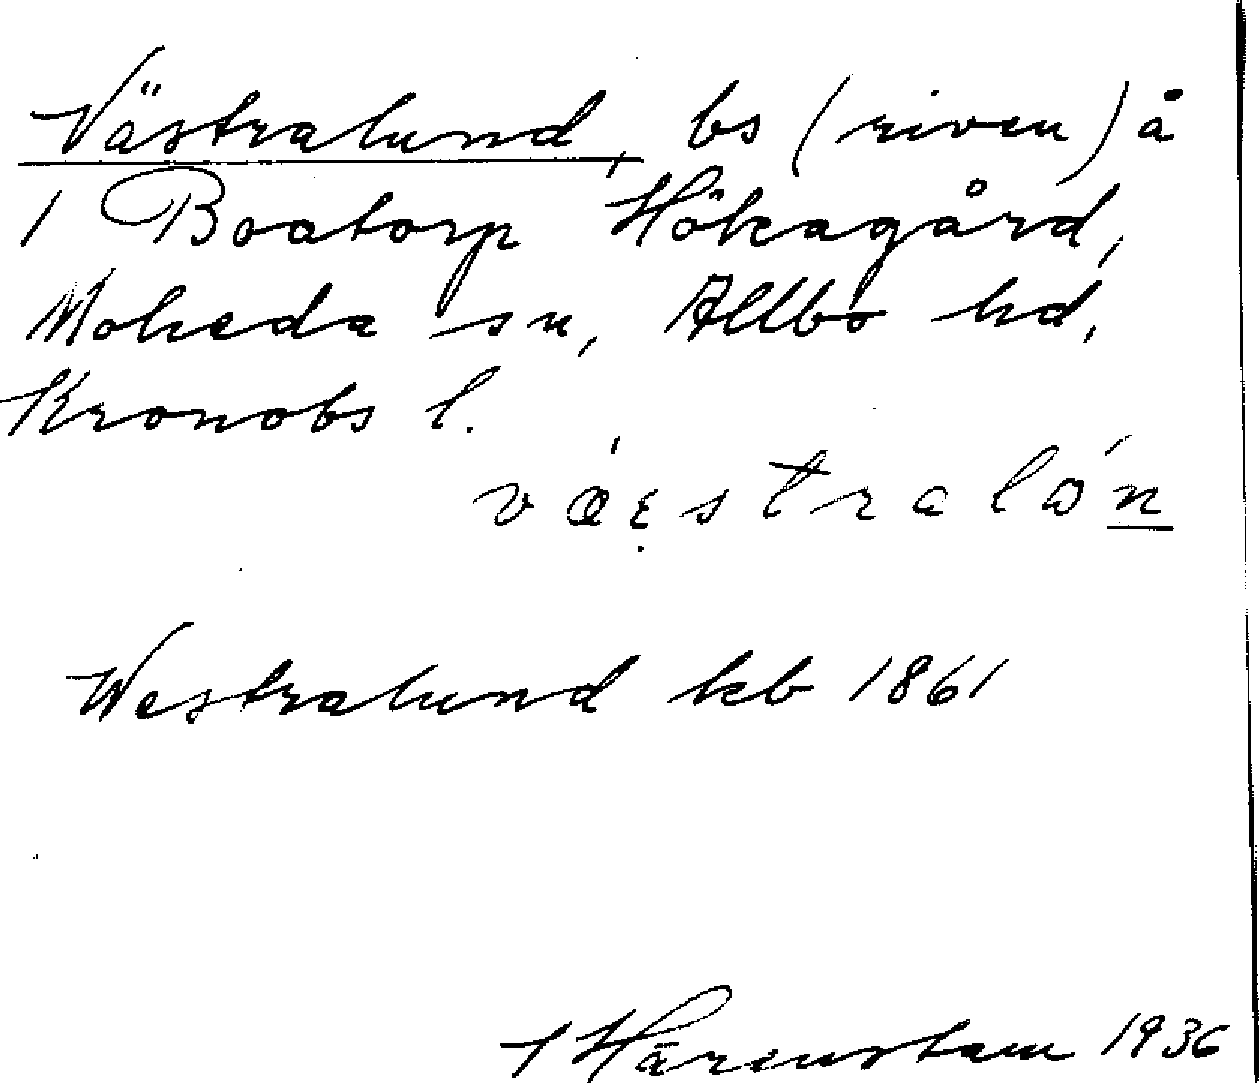 Västralund, bs (riven) å
1 Boatorp Hökagård,
Moheda sn, Allbo hd,
Kronobs l.
Westralund kb 1861
1936